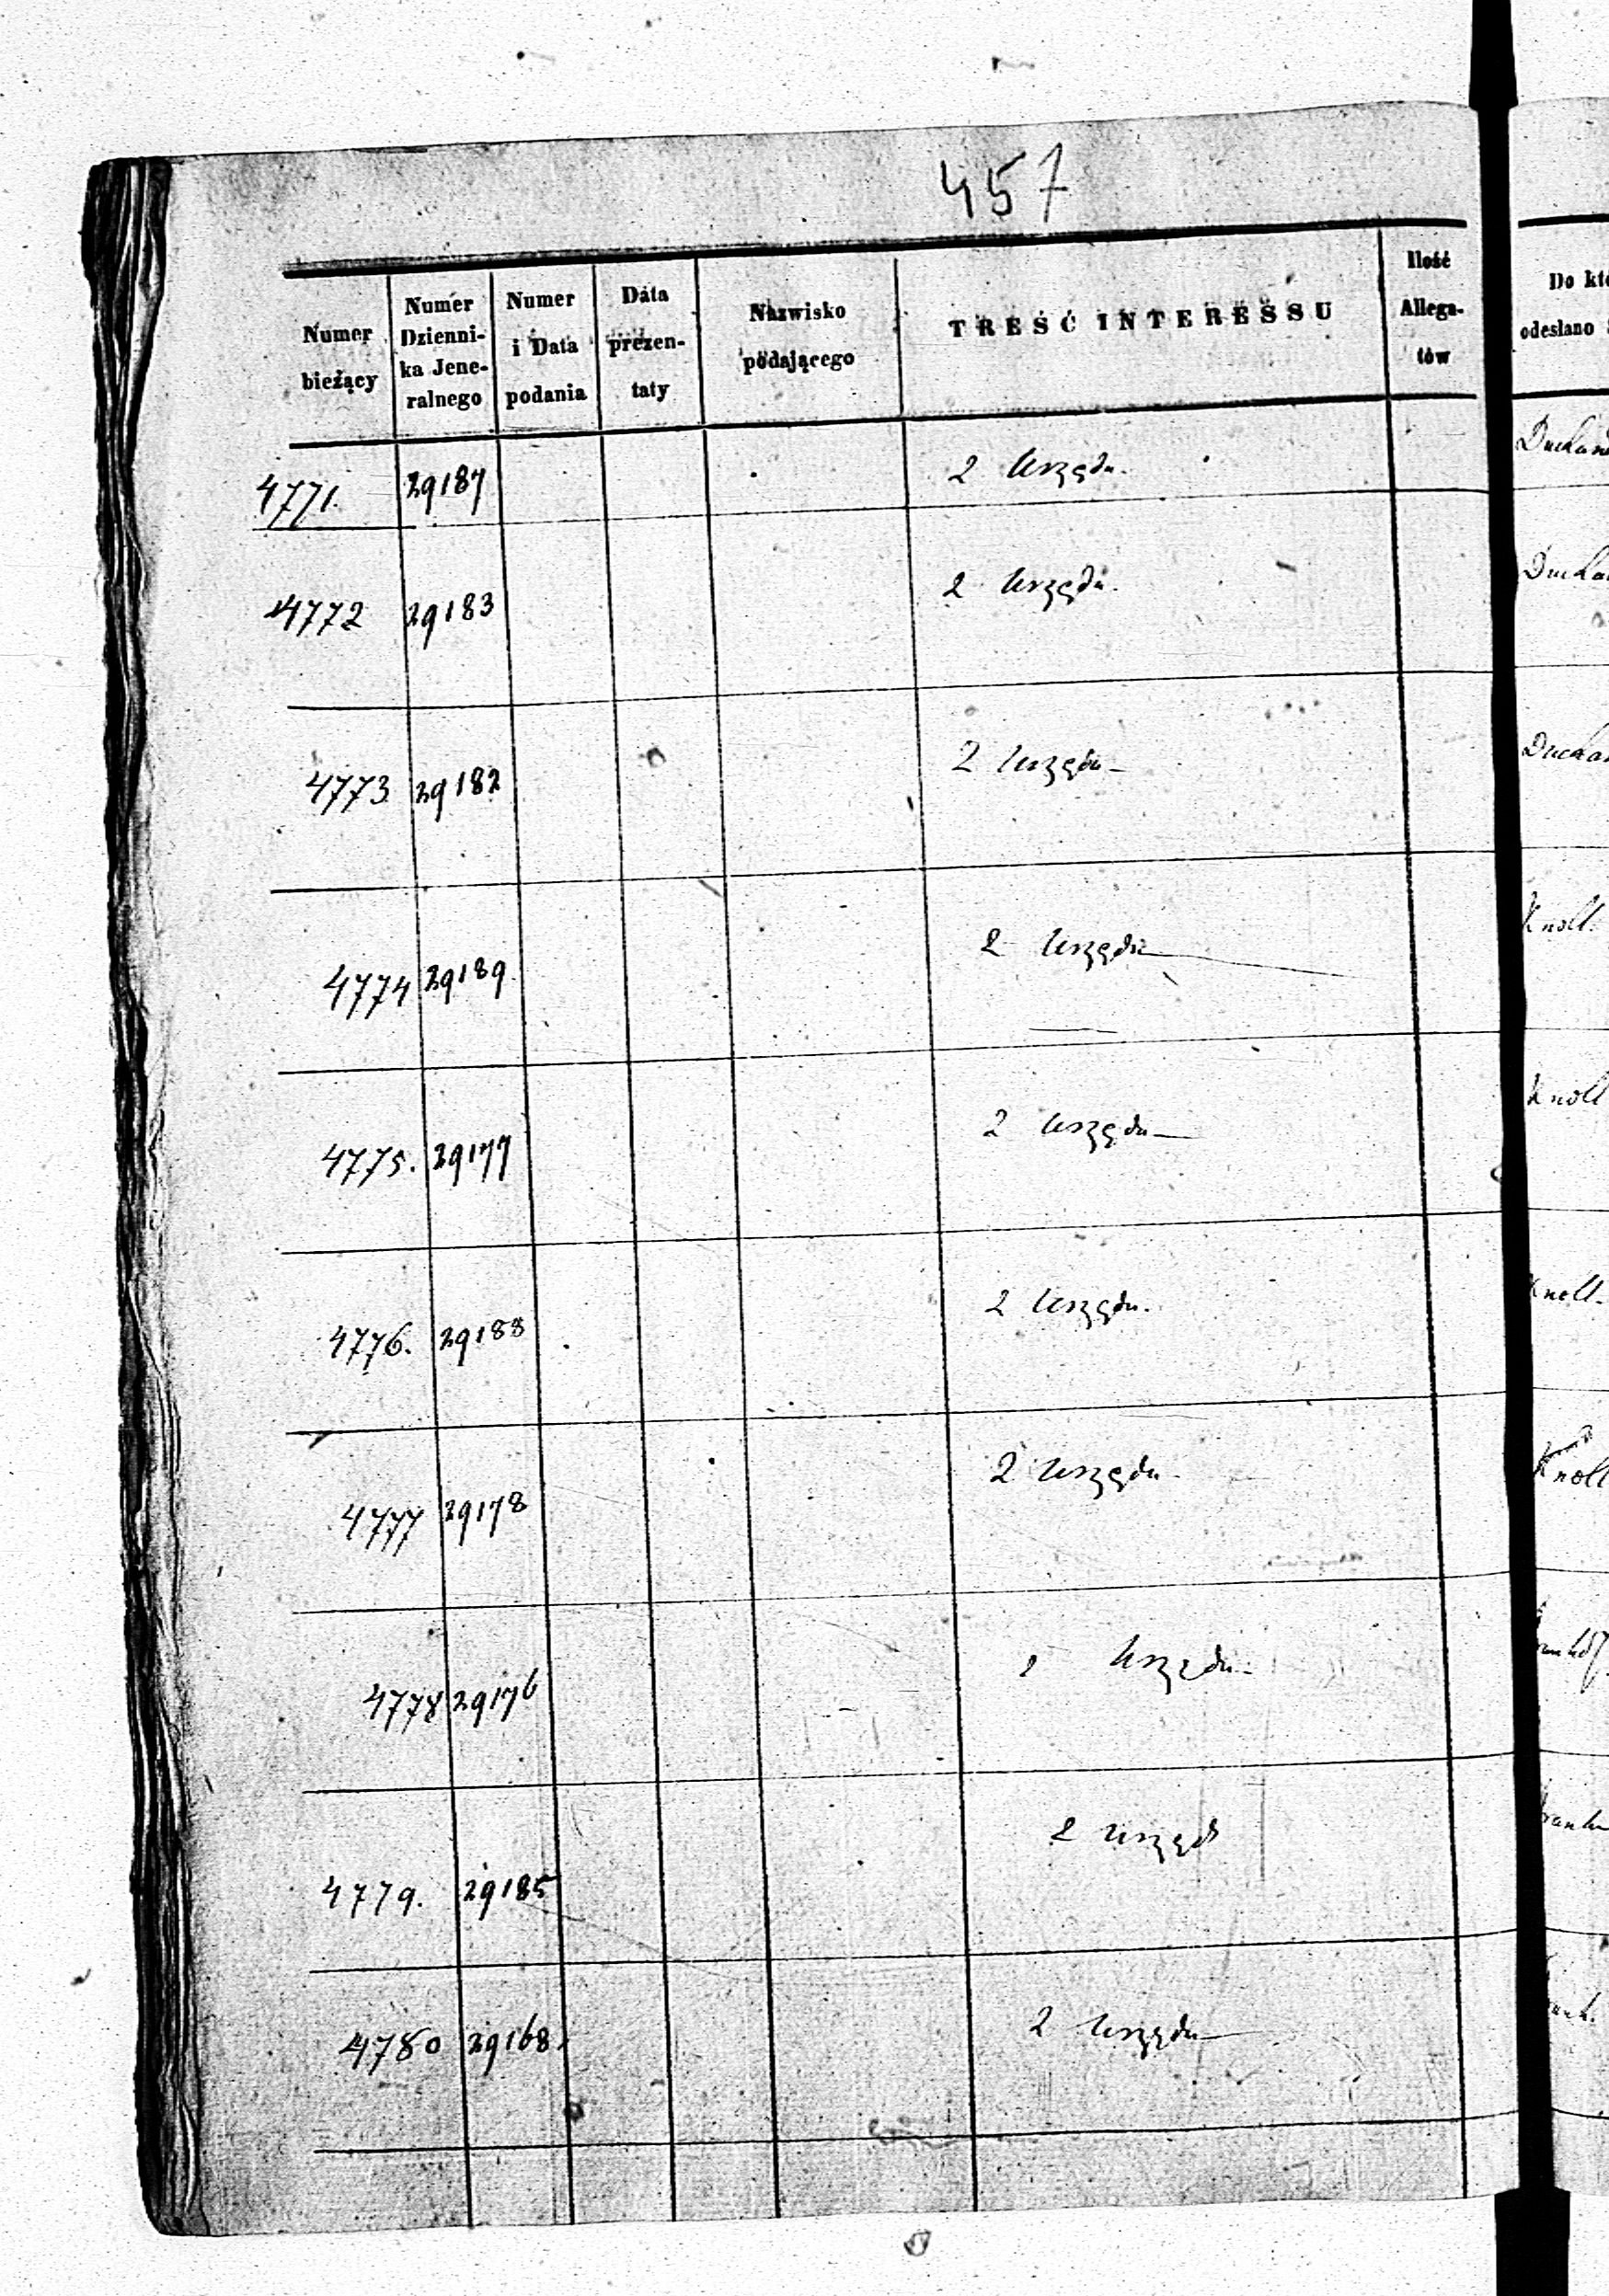 457
Numer bieżący | Numer Dzienni-ka Jene-ralnego | Numer i Data podania | Data prezen-taty | Nazwisko podającego | TREŚĆ INTERESSU | Ilość Allega-tów | Do odesłano
4771. 29187 2 Urzędu.
4772 29183 2 Urzędu.
4773 29182 2 Urzędu
4774 29189 2 Urzędu Knoll.
4775. 29177 2 Urzędu Knoll
4776. 29188 2 Urzędu. Knoll.
4777 29178 2 Urzędu Knoll
4778 29176 Urzędu
4779. 29185 2 Urzęd
4780 29168 2 Urzędu